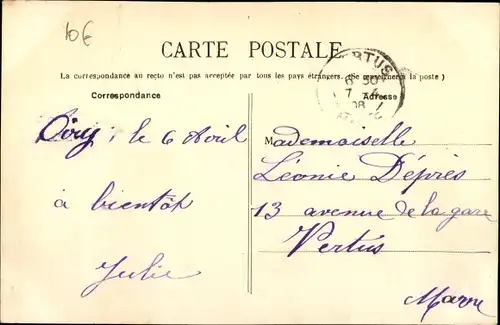 10€
CARTE POSTALE
La correspondance au recto n'est pas acceptée par tous les pays étrangers. (Se renseigner à la poste)
Correspondance
Adresse
VERTUS
6 30
7 - 4
08
le 6 Avril
à bientôt
Julie
Mademoiselle
Léonie Déprès
13 avenue de la gare
Vertus
Marne